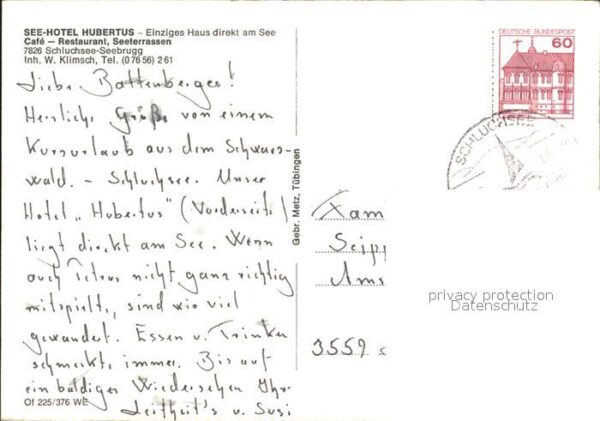 SEE-HOTEL HUBERTUS – Einziges Haus direkt am See
Café – Restaurant, Seeterrassen
7826 Schluchsee-Seebrugg
Inh. W. Klimsch, Tel. (0 76 56) 2 61
Liebe Battenberger!
Herzliche Grüße von einem
Kurzurlaub aus dem Schwarz-
wald. - Schluchsee. Unser
Hotel „Hubertus" (Vorderseite)
liegt direkt am See. Wenn
auch Petrus nicht ganz richtig
mitspielt, sind wir viel
gewandert. Essen u. Trinken
schmeckt immer. Bis auf
ein baldiges Wiedersehen Ihr
Leitheit's u. Susi
Of 225/376 WE
Gebr. Metz, Tübingen
DEUTSCHE BUNDESPOST
60
SCHLUCHSEE
Fam
Seipp
Ams
3559
privacy protection
Datenschutz